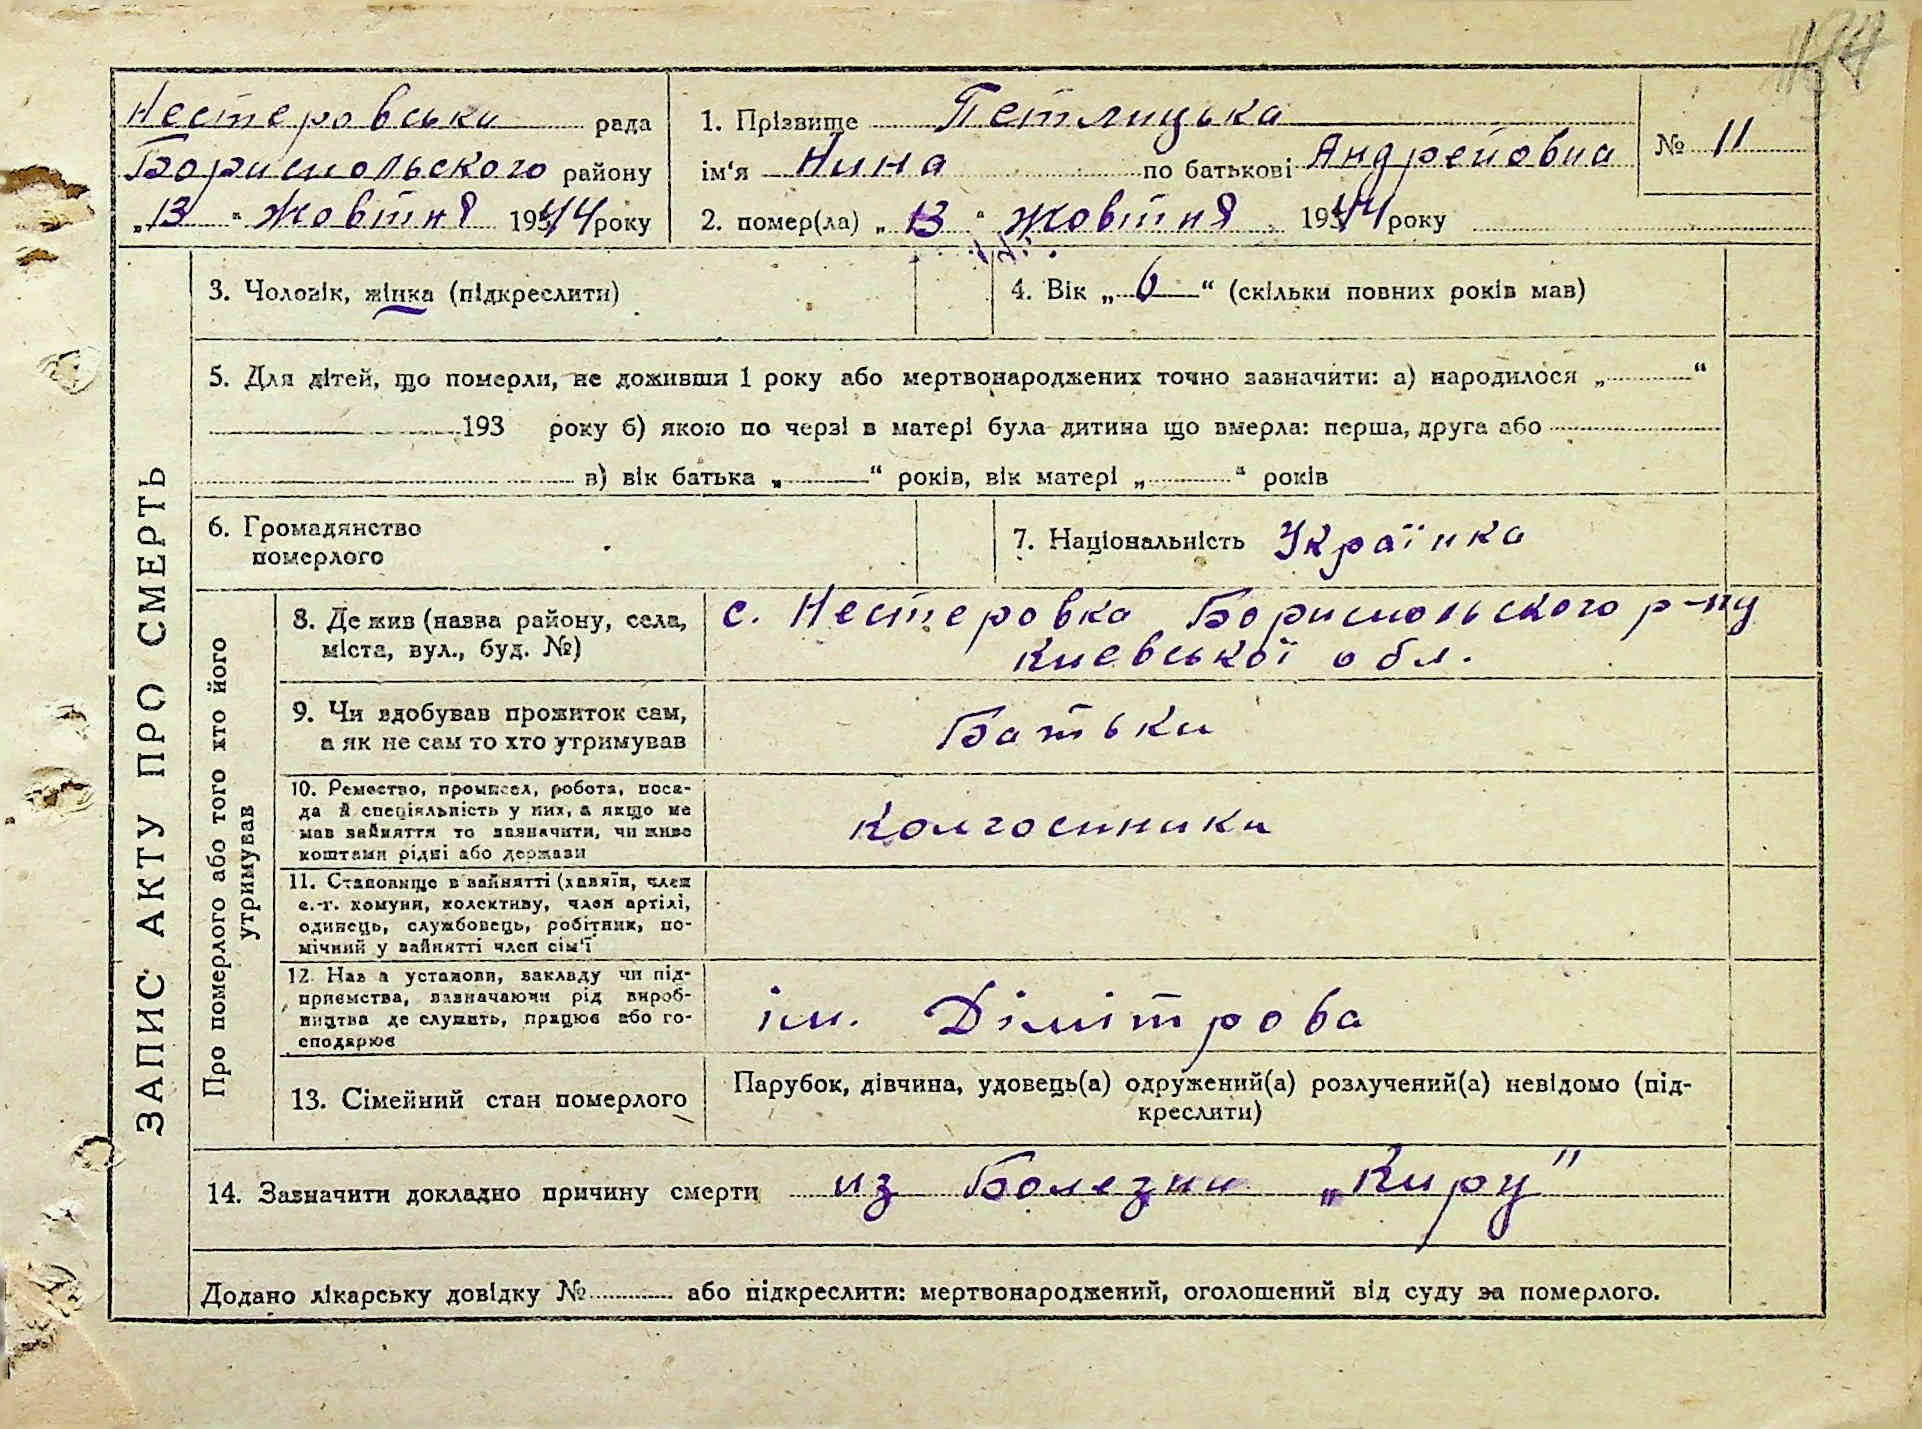 Нестеровська рада
Бориспольского району
„13" Жовтня 1944 року
1. Прізвище Петлицька
ім'я Нина по батькові Андрейовна
№ 11
2. помер(ла) „13" Жовтня 1944 року
3. Чоловік, жінка (підкреслити)
4. Вік „6" (скільки повних років мав)
5. Для дітей, що померли, не доживши 1 року або мертвонароджених точно зазначити: а) народилося „ "
193 року б) якою по черзі в матері була дитина що вмерла: перша, друга або
в) вік батька „ " років, вік матері „ " років
6. Громадянство
померлого
7. Національність Українка
ЗАПИС АКТУ ПРО СМЕРТЬ
Про померлого або того хто його
утримував
8. Де жив (назва району, села,
міста, вул., буд. №)
с. Нестеровка Бориспольского р-ну
Киевської обл.
9. Чи здобував прожиток сам,
а як не сам то хто утримував
Батьки
10. Ремество, промисел, робота, поса-
да й спеціяльність у них, а якщо не
мав зайняття то зазначити, чи живе
коштами рідні або держави
Колгоспники
11. Становище в зайнятті (хазяїн, член
с.-г. комуни, колективу, член артілі,
одинець, службовець, робітник, по-
мічний у зайнятті член сім'ї
12. Наз а установи, закладу чи під-
приємства, зазначаючи рід вироб-
ництва де служить, працює або го-
сподарює
ім. Дімітрова
13. Сімейний стан померлого
Парубок, дівчина, удовець(а) одружений(а) розлучений(а) невідомо (під-
креслити)
14. Зазначити докладно причину смерти из Болезни „Киру"
Додано лікарську довідку № або підкреслити: мертвонароджений, оголошений від суду за померлого.